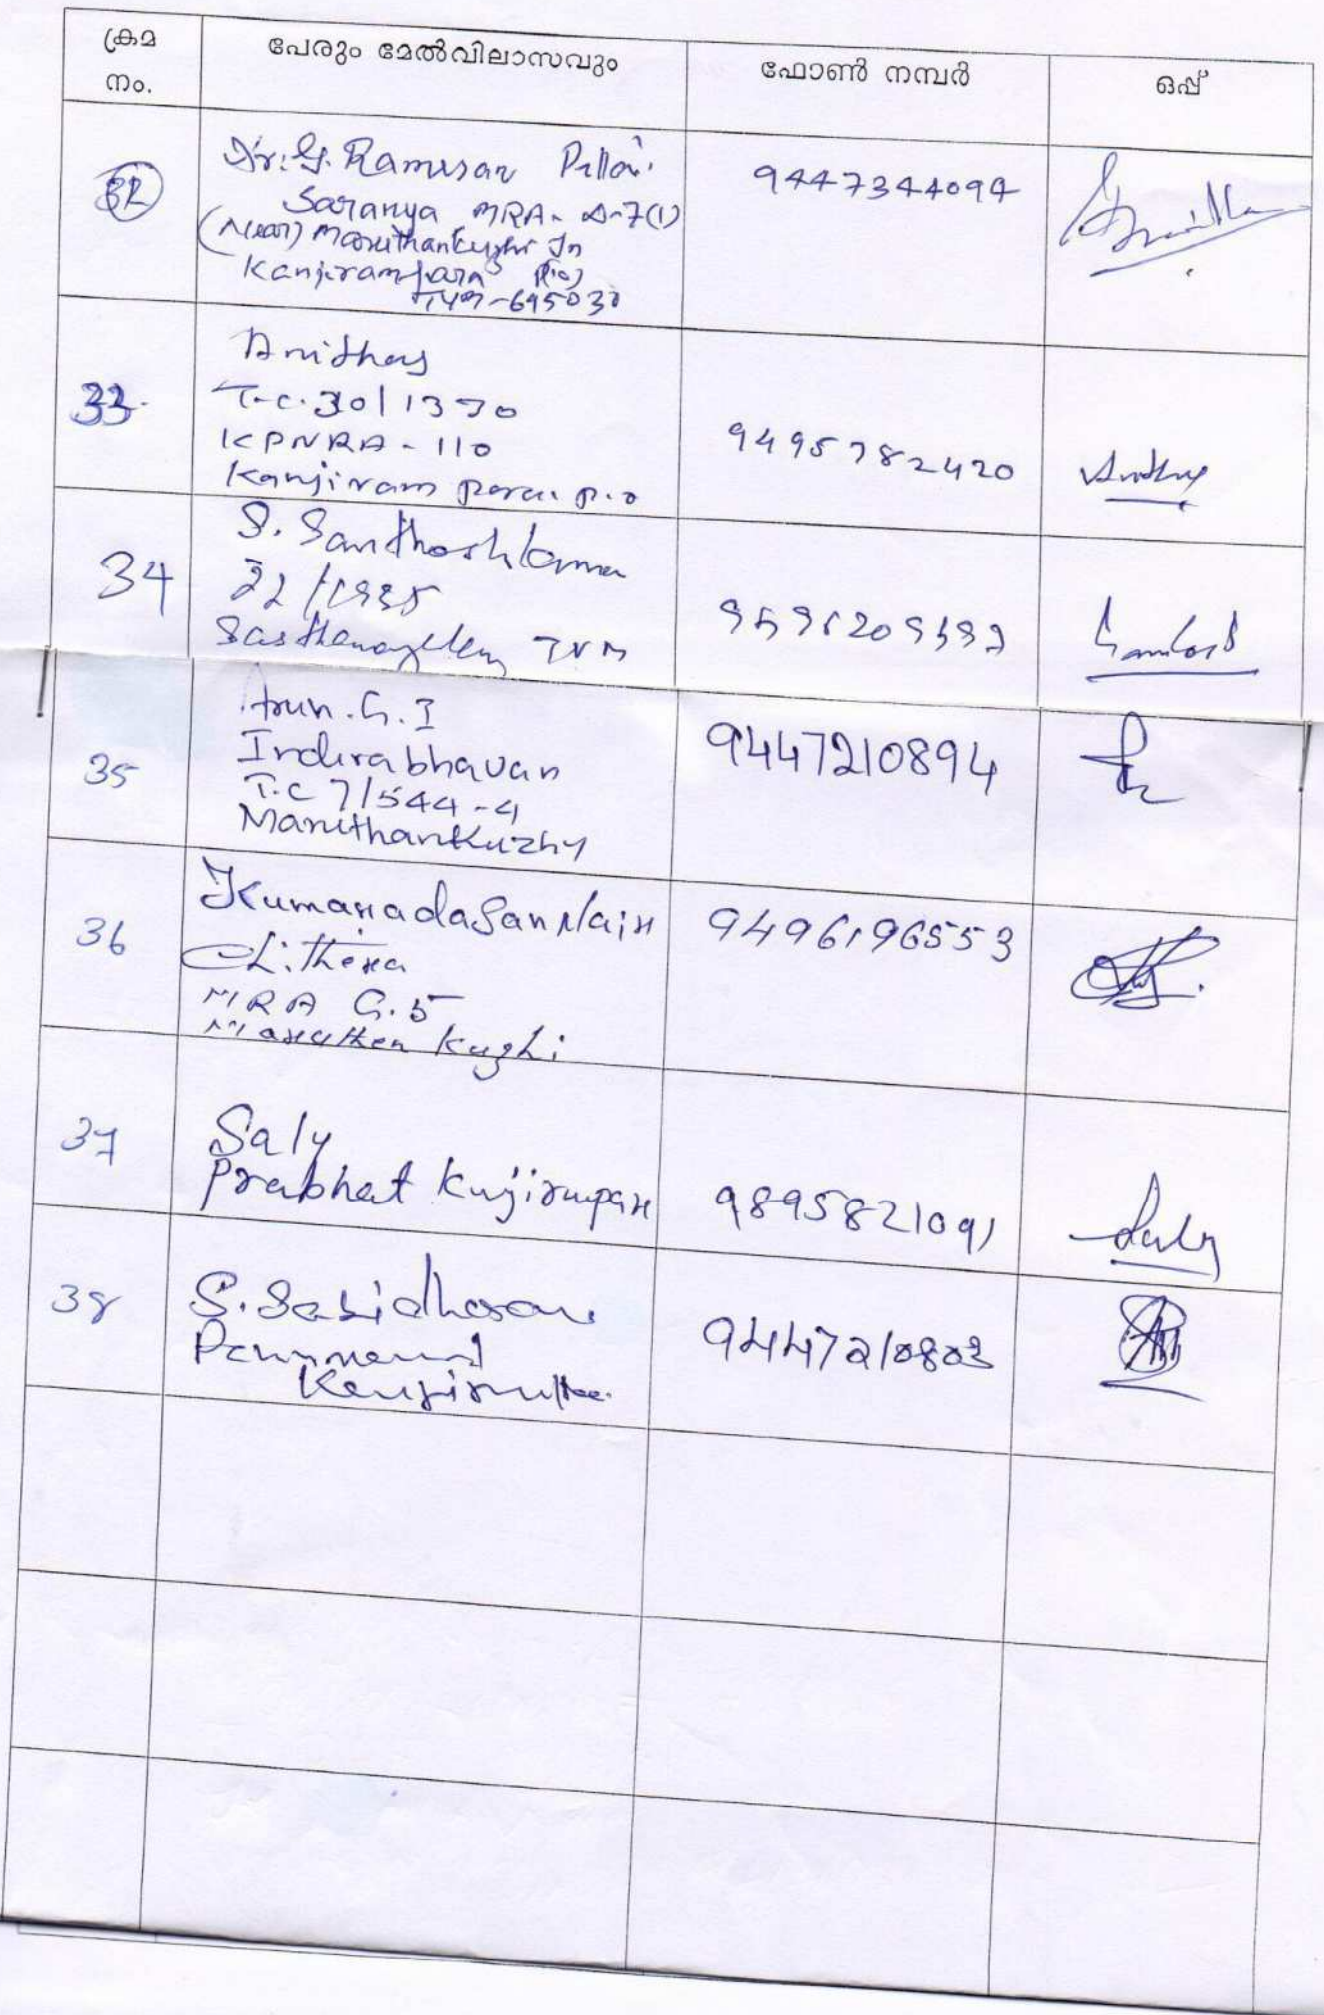 ക്രമ നം.
പേരും മേൽവിലാസവും
ഫോൺ നമ്പർ
ഒപ്പ്
32
Dr. G. Ramesan Pillai
9447344094
Saranya MRA- A-7(1)
(Near) Maruthankuzhi Jn
Kanjirampara P.O
TVM-695030
33.
Anitha
T.C. 30/1370
KPNRA - 110
Kanjirampara p.o
9495782420
34
S. Santhoshkumar
Sasthamangalam TVM
35
Arun. G. I
Indirabhavan
T.C 7/544-4
Maruthankuzhy
9447210894
36
Kumaradasan Nair
Chithira
MRA G.5
Maruthankuzhi
9496196553
37
Saly
Prabhat Kujirapara
9895821091
Saly
38
S. Sasidharan
9447210803